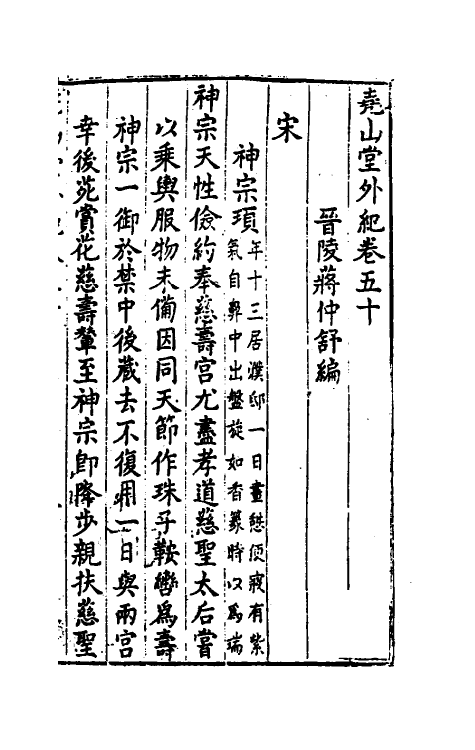 堯山堂外紀卷五十
晉陵蔣仲舒編
宋
神宗頊
年十三居濮邸一日晝憩便寢有紫
氣自鼻中出盤旋如香篆時以為瑞
神宗天性儉約奉慈壽宮尤盡孝道慈聖太后嘗
以乘輿服物未備因同天節作珠子鞍轡為壽
神宗一御於禁中後藏去不復用一日與兩宮
幸後苑賞花慈壽輦至神宗即降步親扶慈聖